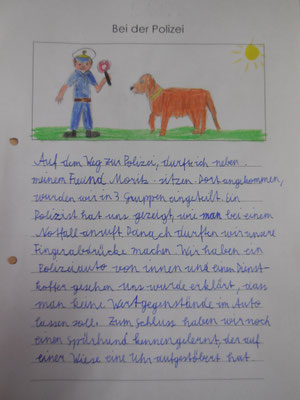 Bei der Polizei
Auf dem Weg zur Polizei, durfte ich neben
meinem Freund Moritz sitzen. Dort angekommen,
wurden wir in 3 Gruppen eingeteilt. Ein
Polizist hat uns gezeigt, wie man bei einem
Notfall anruft. Danach durften wir unsere
Fingerabdrücke machen. Wir haben ein
Polizeiauto von innen und einen Dienst-
koffer gesehen. Uns wurde erklärt, dass
man keine Wertgegenstände im Auto
lassen soll. Zum Schluss haben wir noch
einen Spürhund kennengelernt, der auf
einer Wiese eine Uhr aufgestöbert hat.